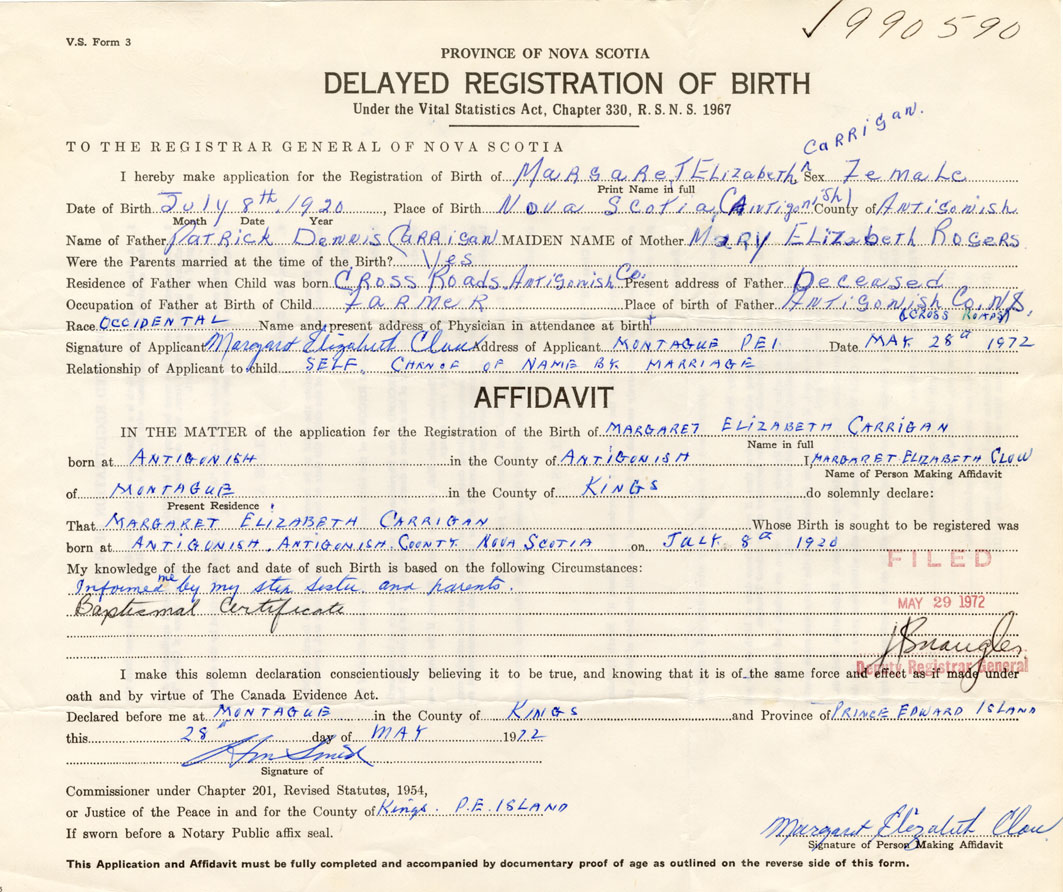 990590
V.S. Form 3
PROVINCE OF NOVA SCOTIA
DELAYED REGISTRATION OF BIRTH
Under the Vital Statistics Act, Chapter 330, R. S. N. S. 1967
CARRIGAN.
TO THE REGISTRAR GENERAL OF NOVA SCOTIA
I hereby make application for the Registration of Birth of MARGARET Elizabeth ^ Sex Female
Print Name in full
Date of Birth July 8th, 1920, Place of Birth NOVA SCOTIA (Antigonish) County of ANTIGONISH
Month Date Year
Name of Father PATRICK DENNIS CARRIGAN MAIDEN NAME of Mother MARY ELIZABETH ROGERS
Were the Parents married at the time of the Birth? Yes
Residence of Father when Child was born CROSS ROADS, ANTIGONISH Co. Present address of Father Deceased
Occupation of Father at Birth of Child FARMER Place of birth of Father ANTIGONISH Co. N.S.
(CROSS ROADS)
Race OCCIDENTAL Name and present address of Physician in attendance at birth†
Signature of Applicant Margaret Elizabeth Clow Address of Applicant MONTAGUE PEI Date MAY 28th 1972
Relationship of Applicant to child SELF, CHANGE OF NAME BY MARRIAGE
AFFIDAVIT
IN THE MATTER of the application for the Registration of the Birth of MARGARET ELIZABETH CARRIGAN
Name in full
born at ANTIGONISH in the County of ANTIGONISH I, MARGARET ELIZABETH CLOW
Name of Person Making Affidavit
of MONTAGUE in the County of KING'S do solemnly declare:
Present Residence
That MARGARET ELIZABETH CARRIGAN Whose Birth is sought to be registered was
born at ANTIGONISH, ANTIGONISH COUNTY NOVA SCOTIA on JULY 8th 1920
FILED
My knowledge of the fact and date of such Birth is based on the following Circumstances:
Informed me by my step sister and parents.
Baptismal Certificate
MAY 29 1972
Deputy Registrar General
I make this solemn declaration conscientiously believing it to be true, and knowing that it is of the same force and effect as if made under
oath and by virtue of The Canada Evidence Act.
Declared before me at MONTAGUE in the County of KINGS and Province of PRINCE EDWARD ISLAND
this 28th day of MAY 1972
Signature of
Commissioner under Chapter 201, Revised Statutes, 1954,
or Justice of the Peace in and for the County of Kings. P.E. ISLAND
If sworn before a Notary Public affix seal.
Margaret Elizabeth Clow
Signature of Person Making Affidavit
This Application and Affidavit must be fully completed and accompanied by documentary proof of age as outlined on the reverse side of this form.